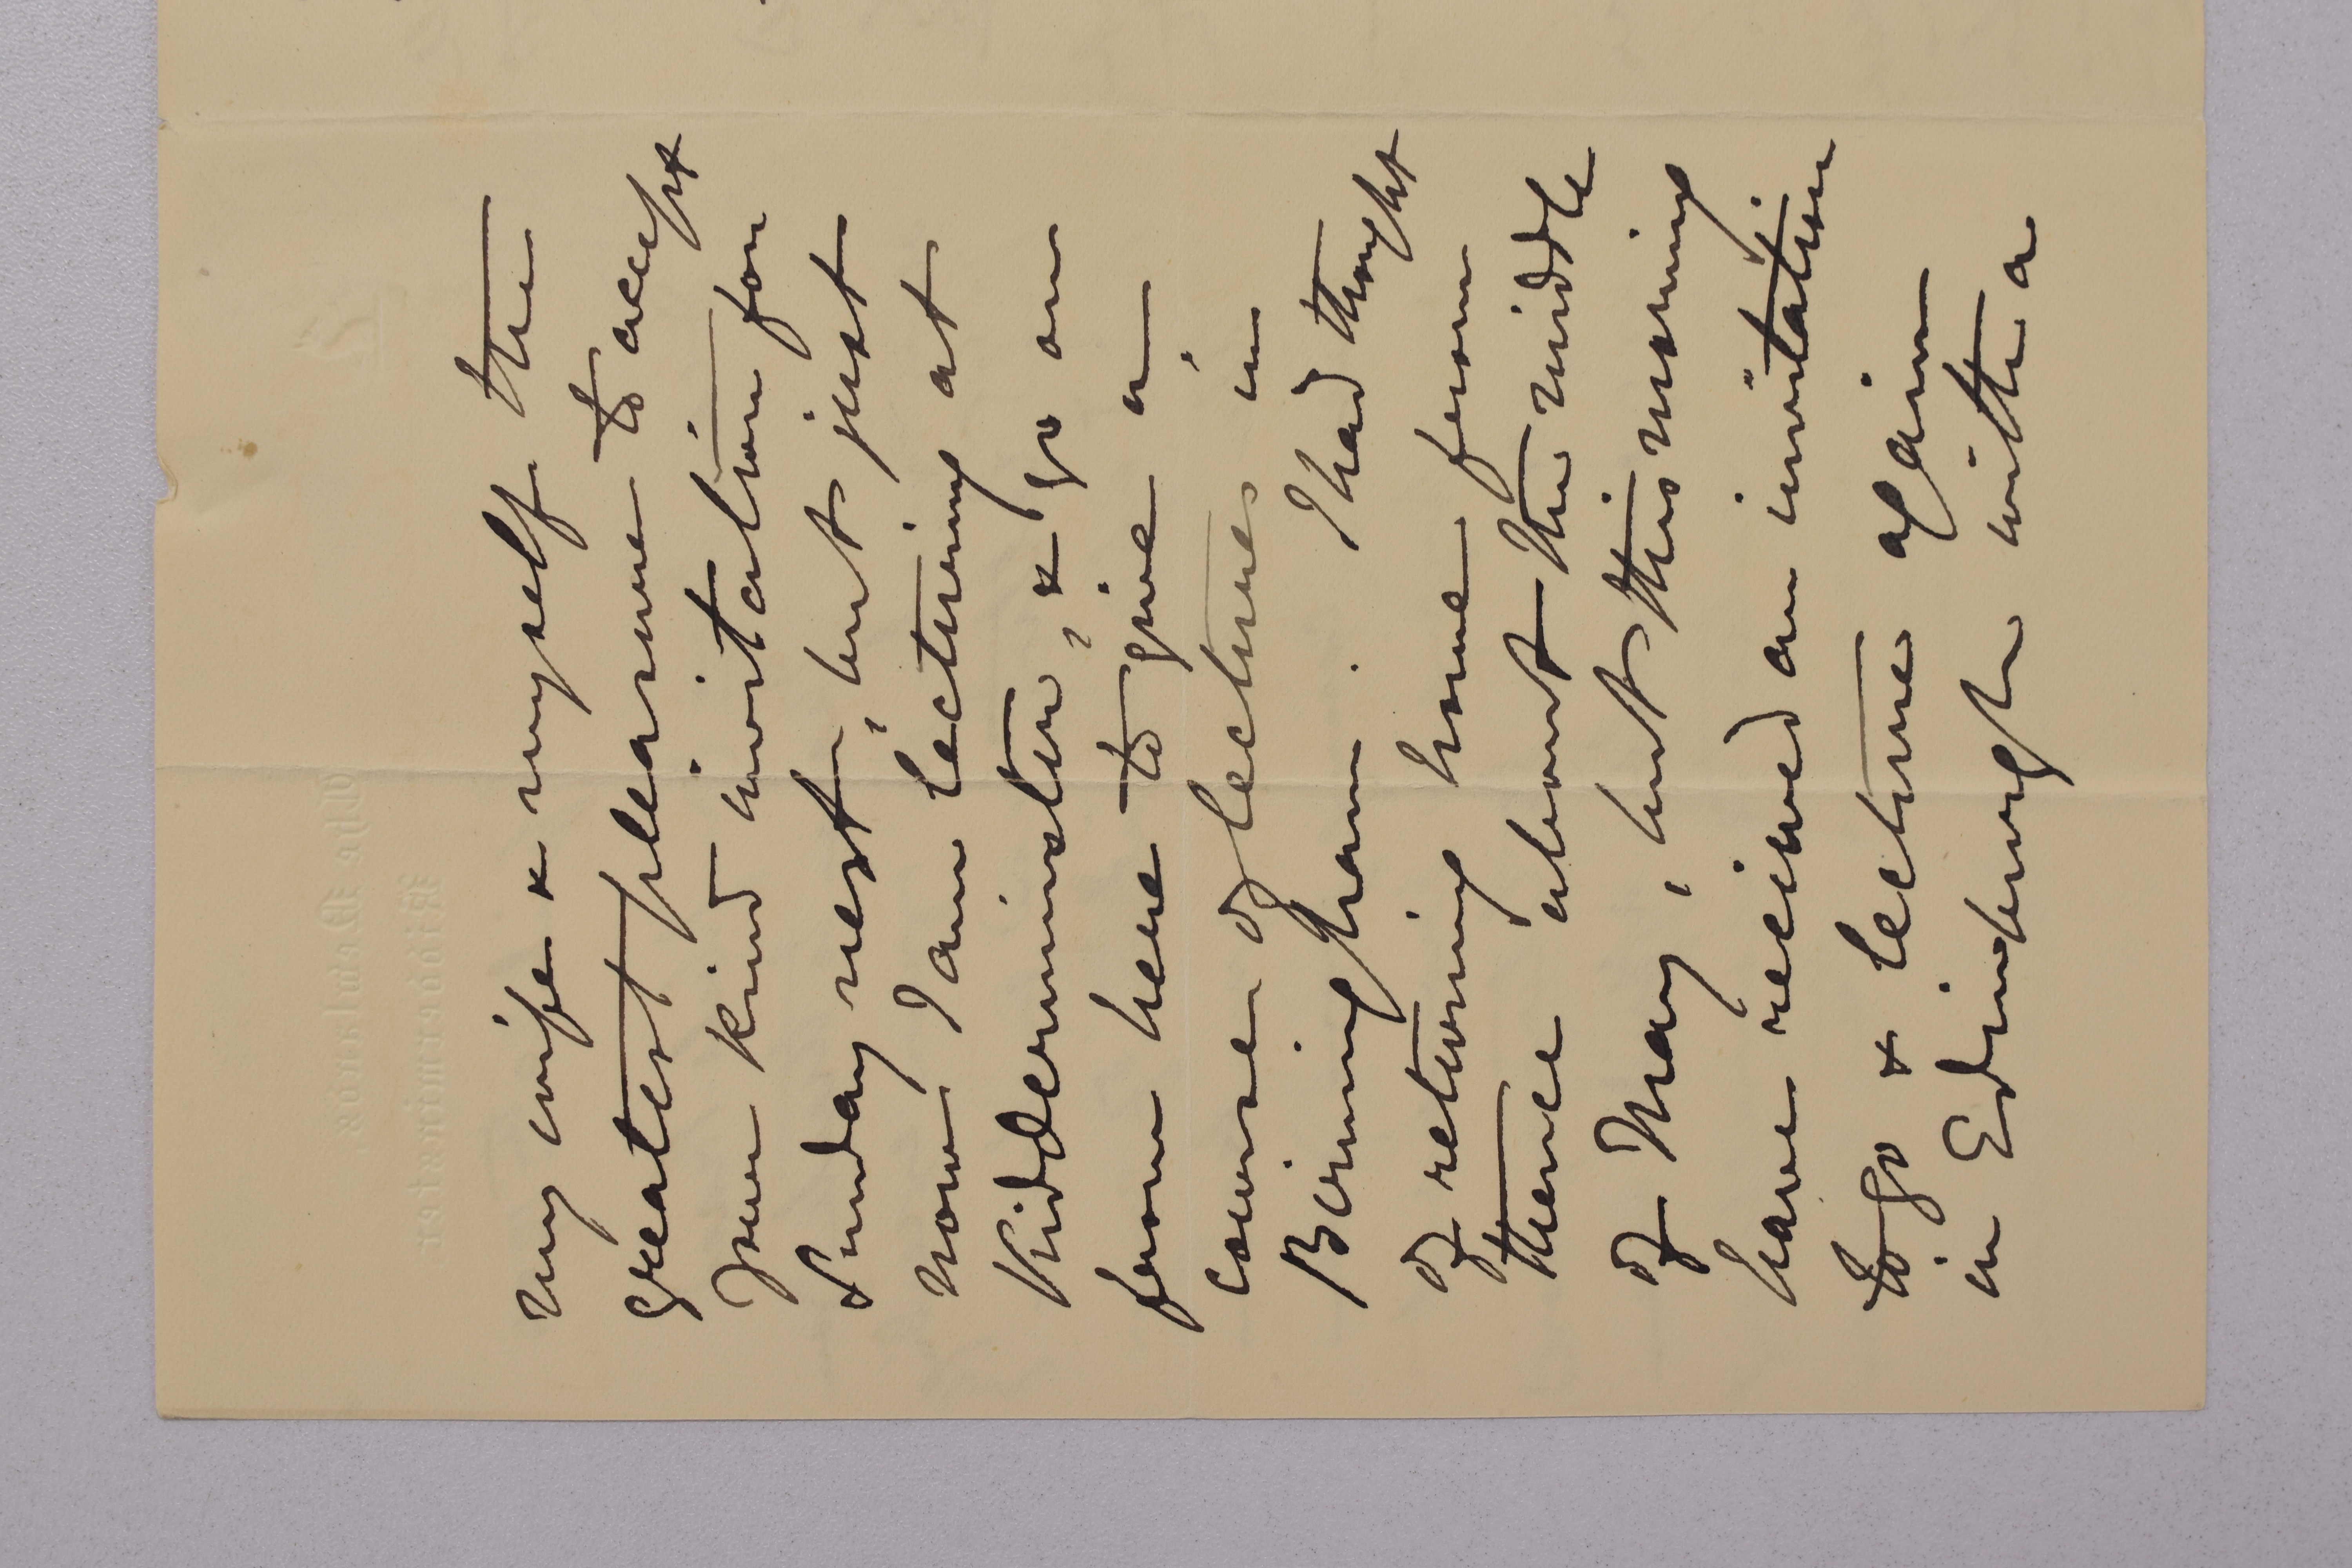 my wife & myself the
greatest pleasure to accept
your kind invitation for
Sunday next, but just
now I am lecturing at
Kidderminster, & go on
from here to give a
course of lectures in
Birmingham. I had thought
of returning home from
thence about the middle
of May, but this morning
have received an invitation
to go & lecture again
in Edinburgh with a